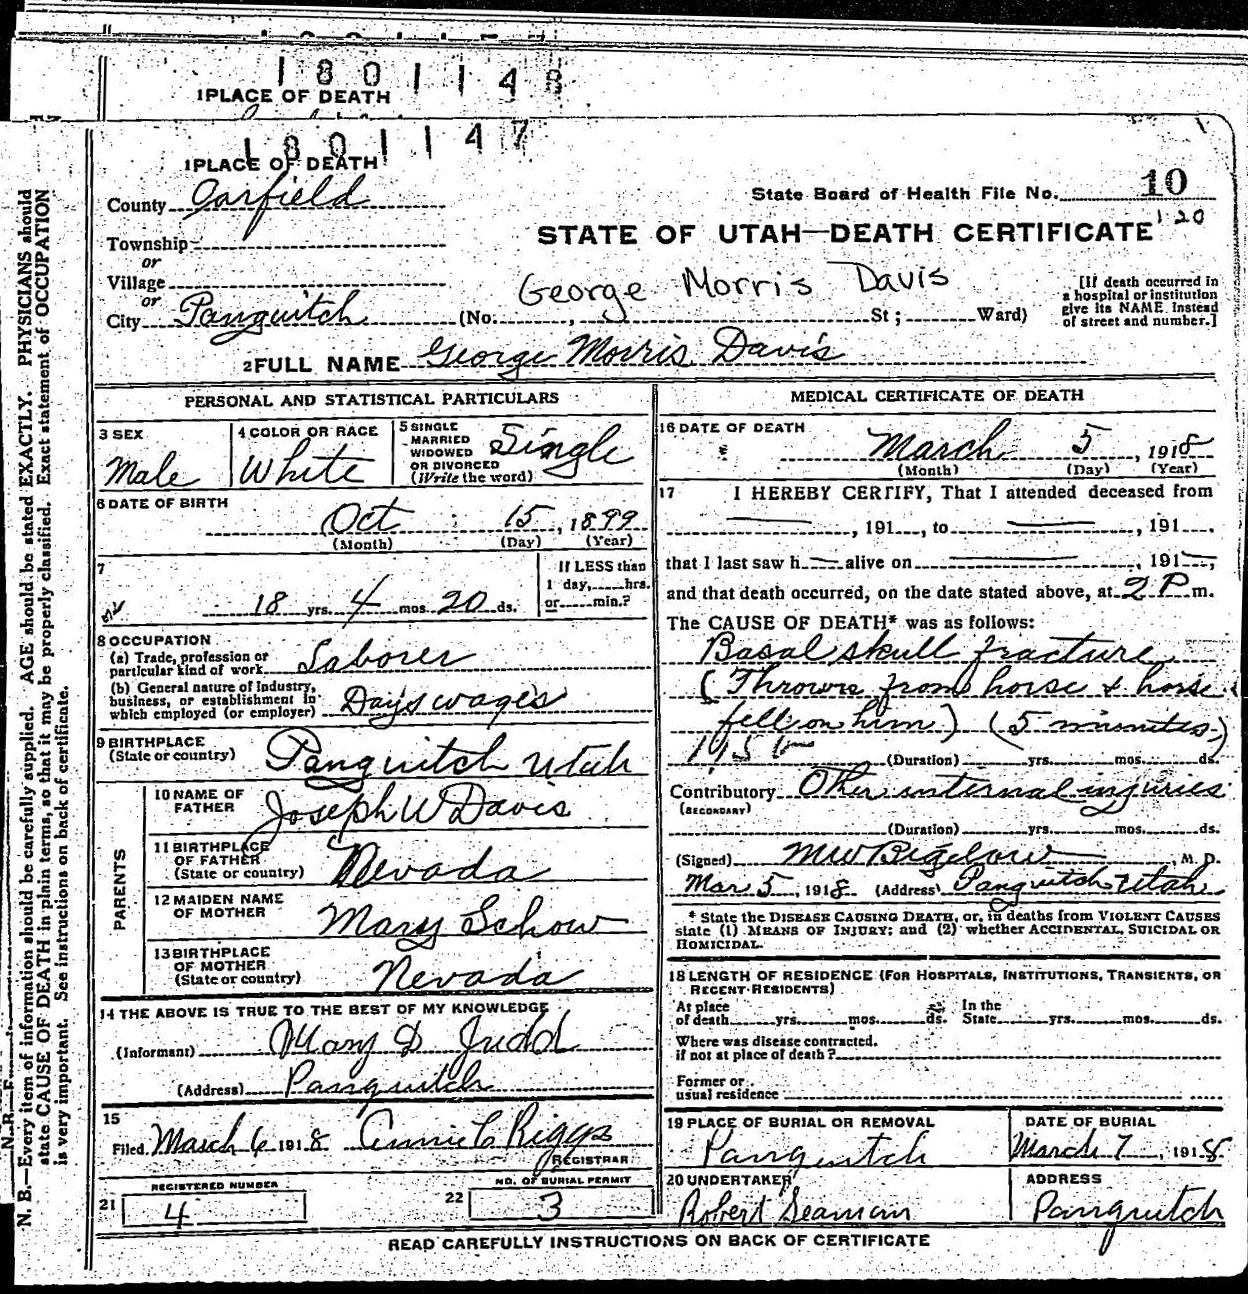 1801148
1 PLACE OF DEATH
1801147
1 PLACE OF DEATH
County Garfield
State Board of Health File No. 10
120
Township
or
STATE OF UTAH—DEATH CERTIFICATE
Village
or
George Morris Davis
[If death occurred in
a hospital or institution
give its NAME instead
of street and number.]
City Panguitch (No. , St ; Ward)
2 FULL NAME George Morris Davis
PERSONAL AND STATISTICAL PARTICULARS
3 SEX
Male
4 COLOR OR RACE
White
5 SINGLE
MARRIED
WIDOWED
OR DIVORCED
(Write the word)
Single
6 DATE OF BIRTH
Oct 15, 1899
(Month) (Day) (Year)
7
18 yrs. 4 mos. 20 ds.
If LESS than
1 day, hrs.
or min.?
8 OCCUPATION
(a) Trade, profession or
particular kind of work Laborer
(b) General nature of industry,
business, or establishment in
which employed (or employer) Days wages
9 BIRTHPLACE
(State or country) Panguitch Utah
PARENTS
10 NAME OF
FATHER Joseph W Davis
11 BIRTHPLACE
OF FATHER
(State or country) Nevada
12 MAIDEN NAME
OF MOTHER Mary Schow
13 BIRTHPLACE
OF MOTHER
(State or country) Nevada
14 THE ABOVE IS TRUE TO THE BEST OF MY KNOWLEDGE
(Informant) Mary D Judd
(Address) Panguitch
15
Filed March 6 1918 Annie C Riggs
REGISTRAR
REGISTERED NUMBER
21 4
NO. OF BURIAL PERMIT
22 3
MEDICAL CERTIFICATE OF DEATH
16 DATE OF DEATH
March 5, 1918
(Month) (Day) (Year)
17 I HEREBY CERTIFY, That I attended deceased from
, 191 , to , 191 .
that I last saw h alive on , 191 ,
and that death occurred, on the date stated above, at 2 P m.
The CAUSE OF DEATH* was as follows:
Basal skull fracture
(Thrown from horse & horse
fell on him) (5 minutes)
(Duration) yrs. mos. ds.
Contributory Other internal injuries
(SECONDARY)
(Duration) yrs. mos. ds.
(Signed) MW Bigelow, M. D.
Mar 5, 1918 (Address) Panguitch Utah
* State the DISEASE CAUSING DEATH, or, in deaths from VIOLENT CAUSES
state (1) MEANS OF INJURY; and (2) whether ACCIDENTAL, SUICIDAL OR
HOMICIDAL.
18 LENGTH OF RESIDENCE (FOR HOSPITALS, INSTITUTIONS, TRANSIENTS, OR
RECENT RESIDENTS)
At place
of death yrs. mos. ds.
In the
State yrs. mos. ds.
Where was disease contracted.
if not at place of death?
Former or
usual residence
19 PLACE OF BURIAL OR REMOVAL
Panguitch
DATE OF BURIAL
March 7, 1918
20 UNDERTAKER
Robert Seaman
ADDRESS
Panguitch
READ CAREFULLY INSTRUCTIONS ON BACK OF CERTIFICATE
N. B.—Every item of information should be carefully supplied. AGE should be stated EXACTLY. PHYSICIANS should
state CAUSE OF DEATH in plain terms, so that it may be properly classified. Exact statement of OCCUPATION
is very important. See instructions on back of certificate.